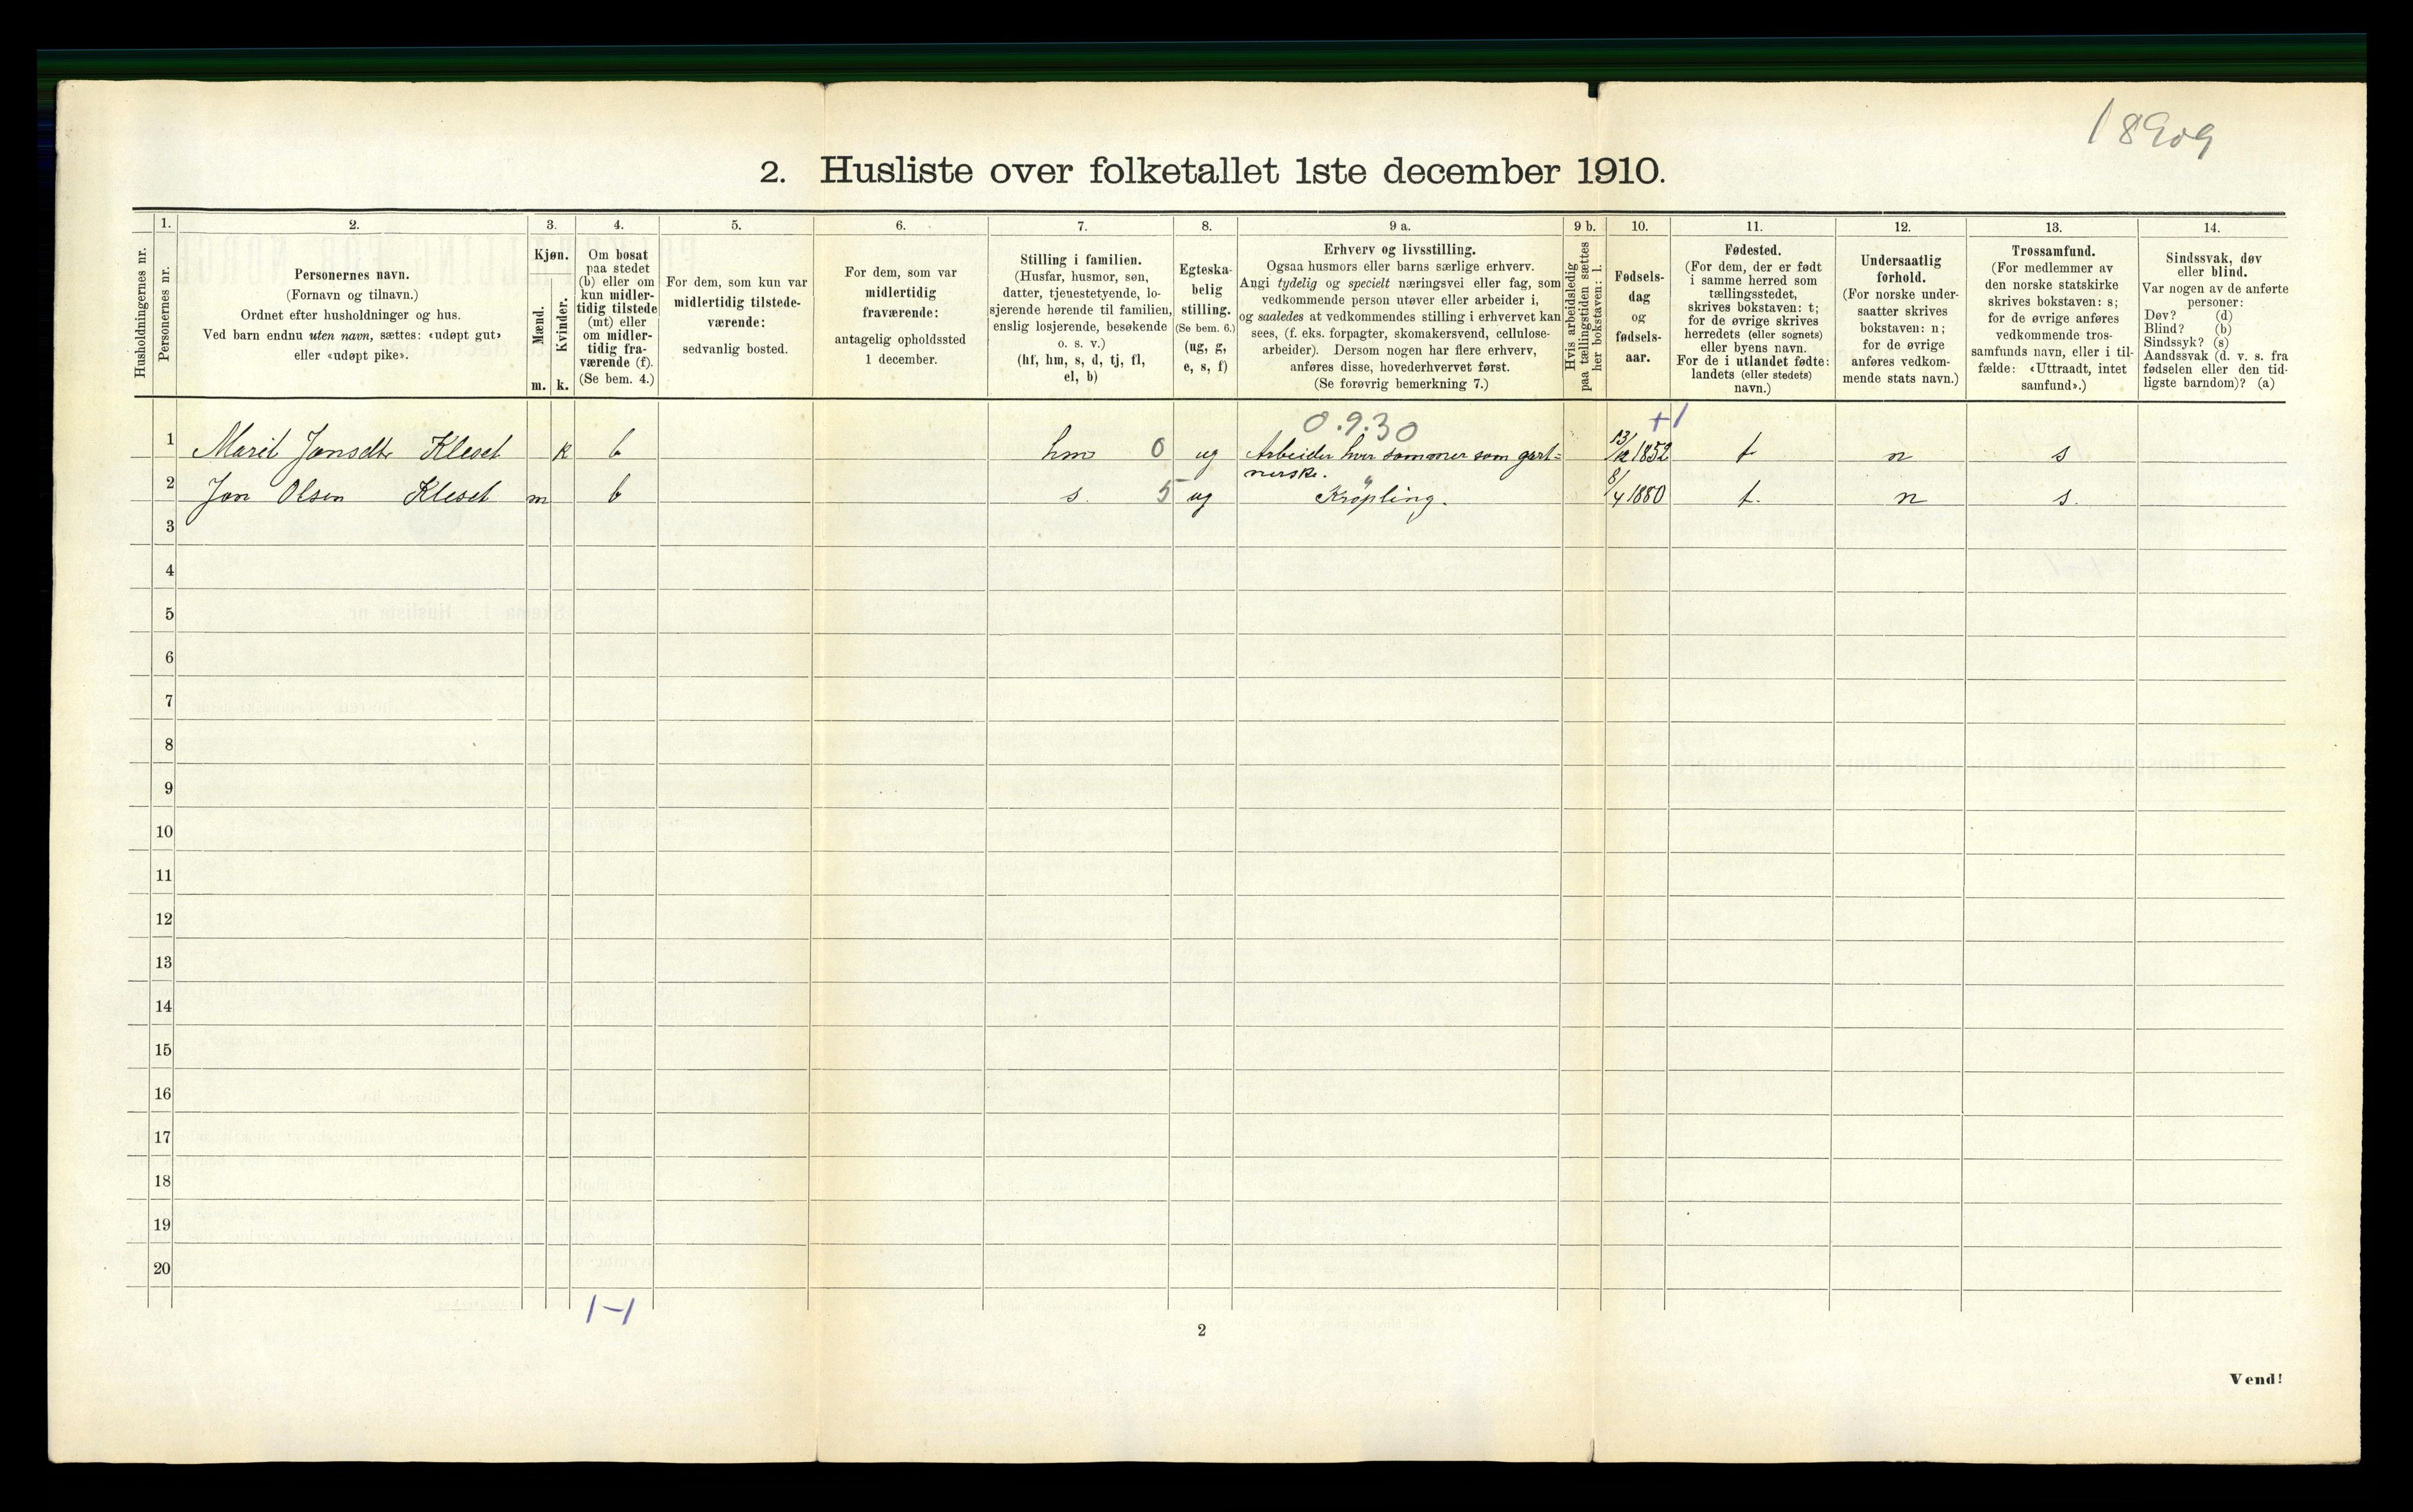 18909
2. Husliste over folketallet 1ste december 1910.
1. 2. 3. 4. 5. 6. 7. 8. 9 a. 9 b. 10. 11. 12. 13. 14.
Husholdningernes nr.
Personernes nr.
Personernes navn.
(Fornavn og tilnavn.)
Ordnet efter husholdninger og hus.
Ved barn endnu uten navn, sættes: «udøpt gut»
eller «udøpt pike».
Kjøn.
Mænd.
Kvinder.
m. k.
Om bosat
paa stedet
(b) eller om
kun midler-
tidig tilstede
(mt) eller
om midler-
tidig fra-
værende (f).
(Se bem. 4.)
For dem, som kun var
midlertidig tilstede-
værende:
sedvanlig bosted.
For dem, som var
midlertidig
fraværende:
antagelig opholdssted
1 december.
Stilling i familien.
(Husfar, husmor, søn,
datter, tjenestetyende, lo-
sjerende hørende til familien,
enslig losjerende, besøkende
o. s. v.)
(hf, hm, s, d, tj, fl,
el, b)
Egteska-
belig
stilling.
(Se bem. 6.)
(ug, g,
e, s, f)
Erhverv og livsstilling.
Ogsaa husmors eller barns særlige erhverv.
Angi tydelig og specielt næringsvei eller fag, som
vedkommende person utøver eller arbeider i,
og saaledes at vedkommendes stilling i erhvervet kan
sees, (f. eks. forpagter, skomakersvend, cellulose-
arbeider). Dersom nogen har flere erhverv,
anføres disse, hovederhvervet først.
(Se forøvrig bemerkning 7.)
Hvis arbeidsledig
paa tællingstiden sættes
her bokstaven: l.
Fødsels-
dag
og
fødsels-
aar.
Fødested.
(For dem, der er født
i samme herred som
tællingsstedet,
skrives bokstaven: t;
for de øvrige skrives
herredets (eller sognets)
eller byens navn.
For de i utlandet fødte:
landets (eller stedets)
navn.)
Undersaatlig
forhold.
(For norske under-
saatter skrives
bokstaven: n;
for de øvrige
anføres vedkom-
mende stats navn.)
Trossamfund.
(For medlemmer av
den norske statskirke
skrives bokstaven: s;
for de øvrige anføres
vedkommende tros-
samfunds navn, eller i til-
fælde: «Uttraadt, intet
samfund».)
Sindssvak, døv
eller blind.
Var nogen av de anførte
personer:
Døv? (d)
Blind? (b)
Sindssyk? (s)
Aandssvak (d. v. s. fra
fødselen eller den tid-
ligste barndom)? (a)
0.9.30 +1
1 Marit Jonsdtr Kleset k b hm 0 ug Arbeider hver sommer som gart= 13/12 1852 t n s
nerske.
2 Jon Olsen Kleset m b s. 5 ug Krøpling. 8/4 1880 t. n s.
3
4
5
6
7
8
9
10
11
12
13
14
15
16
17
18
19
20
1-1
2
Vend!